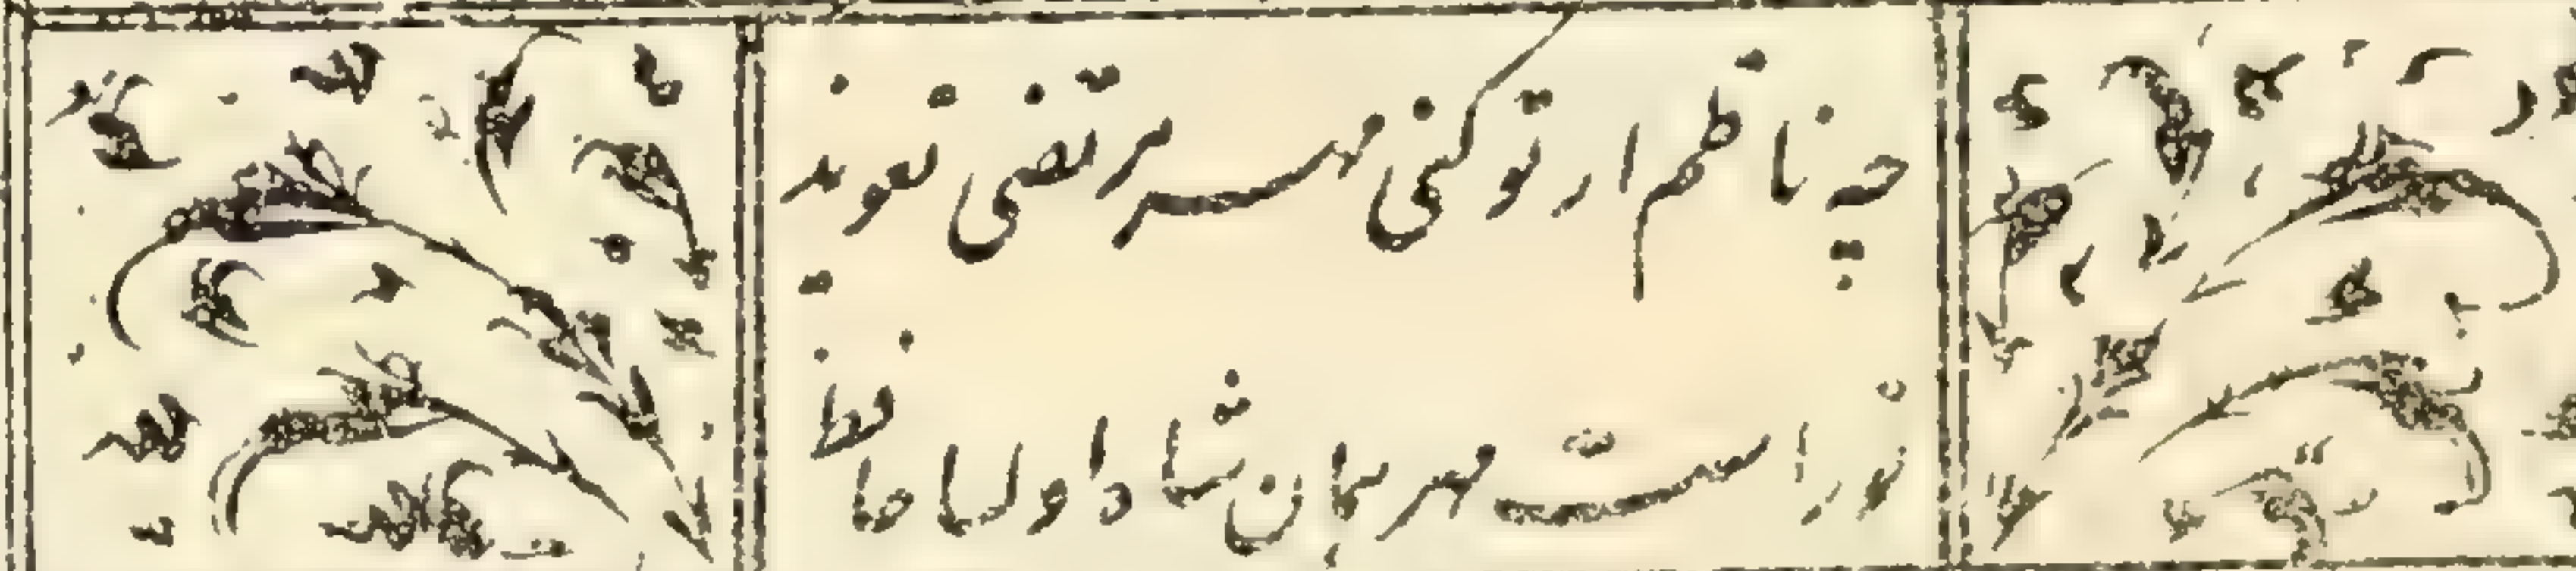 چه ناظم ار تو کنی مهر مرتضی تعوند
تو راست مهر بجان شاه اولیا حافظ